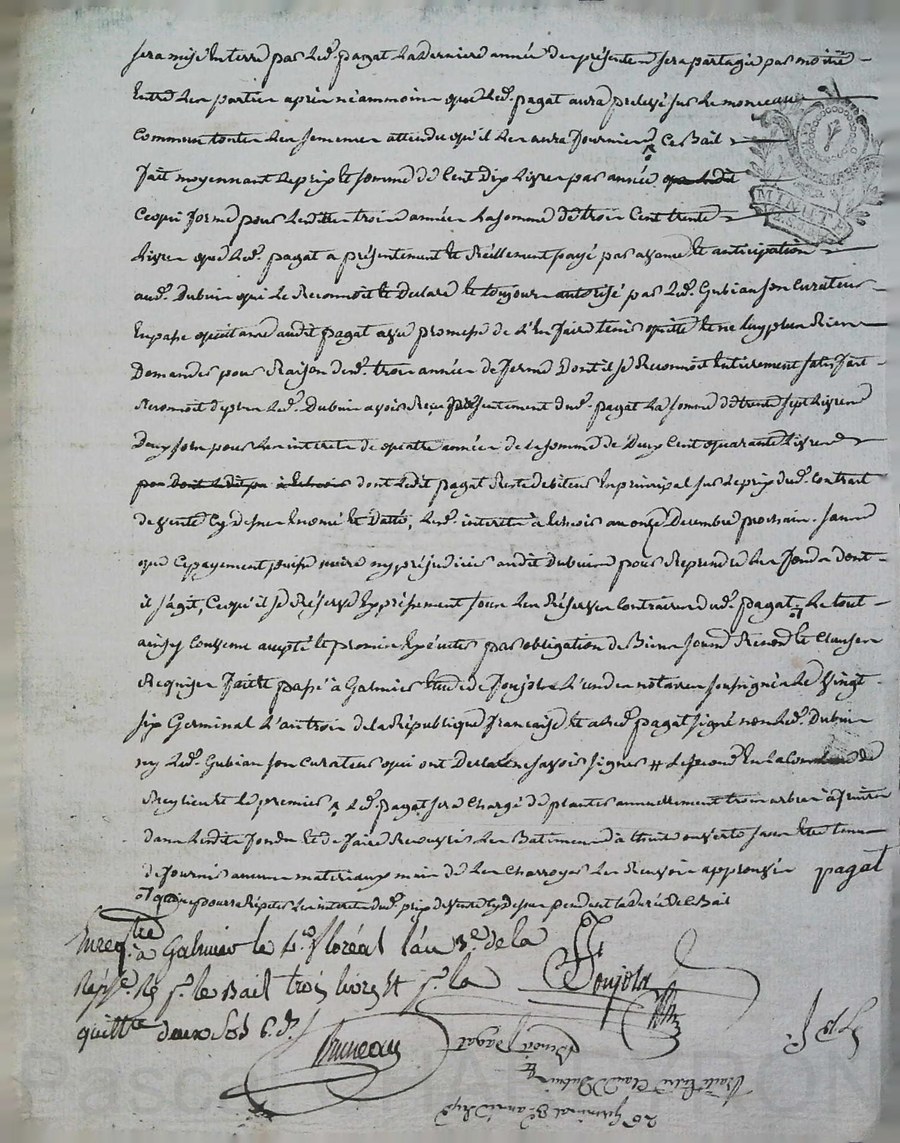 sera mise en terre par led. pagat la derniere année du présent et sera partagée par moitié
Entre les parties après néammoins que led. pagat aura prelevé sur le monceau
Commun toutes les semences attendu qu'il les aura fournies Ce Bail
fait moyennant le prix et somme de Cent Dix livres par année
Ce qui forme pour lesdittes trois années la somme de trois Cent trente
livres que led. pagat a présentement et Réellement payé par avance et anticipation
aud. Dubuin qui le Reconnoit et Declare et toujours autorisé par led. Gubian son Curateur
En passe quittance audit pagat avec promesse de l'En faire tenir quitte et ne luy plus Rien
Demander pour Raison desd. trois années de ferme Dont il se Reconnoit Entierement satisfait
Reconnoit de plus led. Dubuin avoir Reçu présentement dud. pagat la somme de trente sept livres
Deux sols pour les interets de quatre années de la somme de Deux Cent quarante livres
dont ledit pagat Reste debiteur En principal sur le prix dud. Contrat
de vente Cy dessus Enoncé et Datté, lesd. interets à Echeoir au onze Decembre prochain. sans
que Ce payement puisse nuire ny préjudicier audit Dubuin pour Reprendre les fonds dont
il s'agit, Ce qu'il se Réserve Expressement sous les Réserves Contraires dud. pagat. Le tout
ainsy Convenu accepté et promis Exécuter par obligation de Biens soumis Renond. et Clauses
Requises fait et passé à Galmier Etude de Foujols l'un des notaires soussignés Le Vingt
six Germinal L'an trois de la République française et a led. pagat signé non led. Dubuin
ny led. Gubian son curateur qui ont Declaré ne savoir signer # le second En la Commune de
et le premier led. pagat sera Chargé de planter annuellement trois arbres à fruits
dans lesdits fonds et de faire Recouvrir les Batiments à thuile ouverte sans Etre tenu
de fournir aucuns materiaux mais de les Charroyer Les Renvois approuvés pagat
qu'il ne pourra Répéter les interets dud. prix de vente Cy dessus pendant la durée de Bail
Enreg.tré à Galmier le 4.e floréal l'an 3.e de la
Rép.e Re p.r le Bail trois livres et p.r la
quitt.ce deux sols 6.d
Foujols
Bruneau
MINUTE
26 Germinal 3.e année Rep
Bail Entre Claud Dubuin
et Benoit Pagat